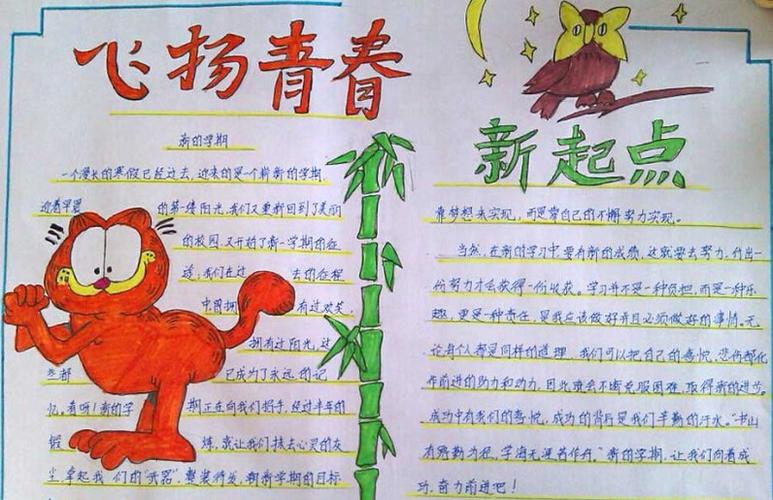 飞扬青春
新的学期
一个漫长的寒假已经过去,迎来的是一个崭新的学期,
迎着早晨的第一缕阳光,我们又重新回到了美丽
的校园,又开始了新一学期的征
途,我们在过去的征程
中曾拥有过欢笑,
拥有过阳光,这
些都已成为了永远的记
忆。看呀!新的学期正在向我们招手,经过半年的
锻炼,就让我们抹去心灵的灰
尘,拿起我们的“武器”,整装待发,朝新学期的目标
新起点
靠梦想来实现,而是靠自己的不懈努力实现。
当然,在新的学习中,要有新的成绩,这就要去努力,付出一
份努力才会获得一份收获。学习并不是一种负担,而是一种乐
趣,更是一种责任,是我应该做好并且必须做好的事情,无
论每个人都是同样的道理,我们可以把自己的喜悦、悲伤都化
作前进的助力和动力,因此就会不断克服困难,取得新的进步。
成功中有我们的喜悦,成功的背后是我们辛勤的汗水。“书山
有路勤为径,学海无涯苦作舟。”新的学期,让我们向着成
功,奋力前进吧!